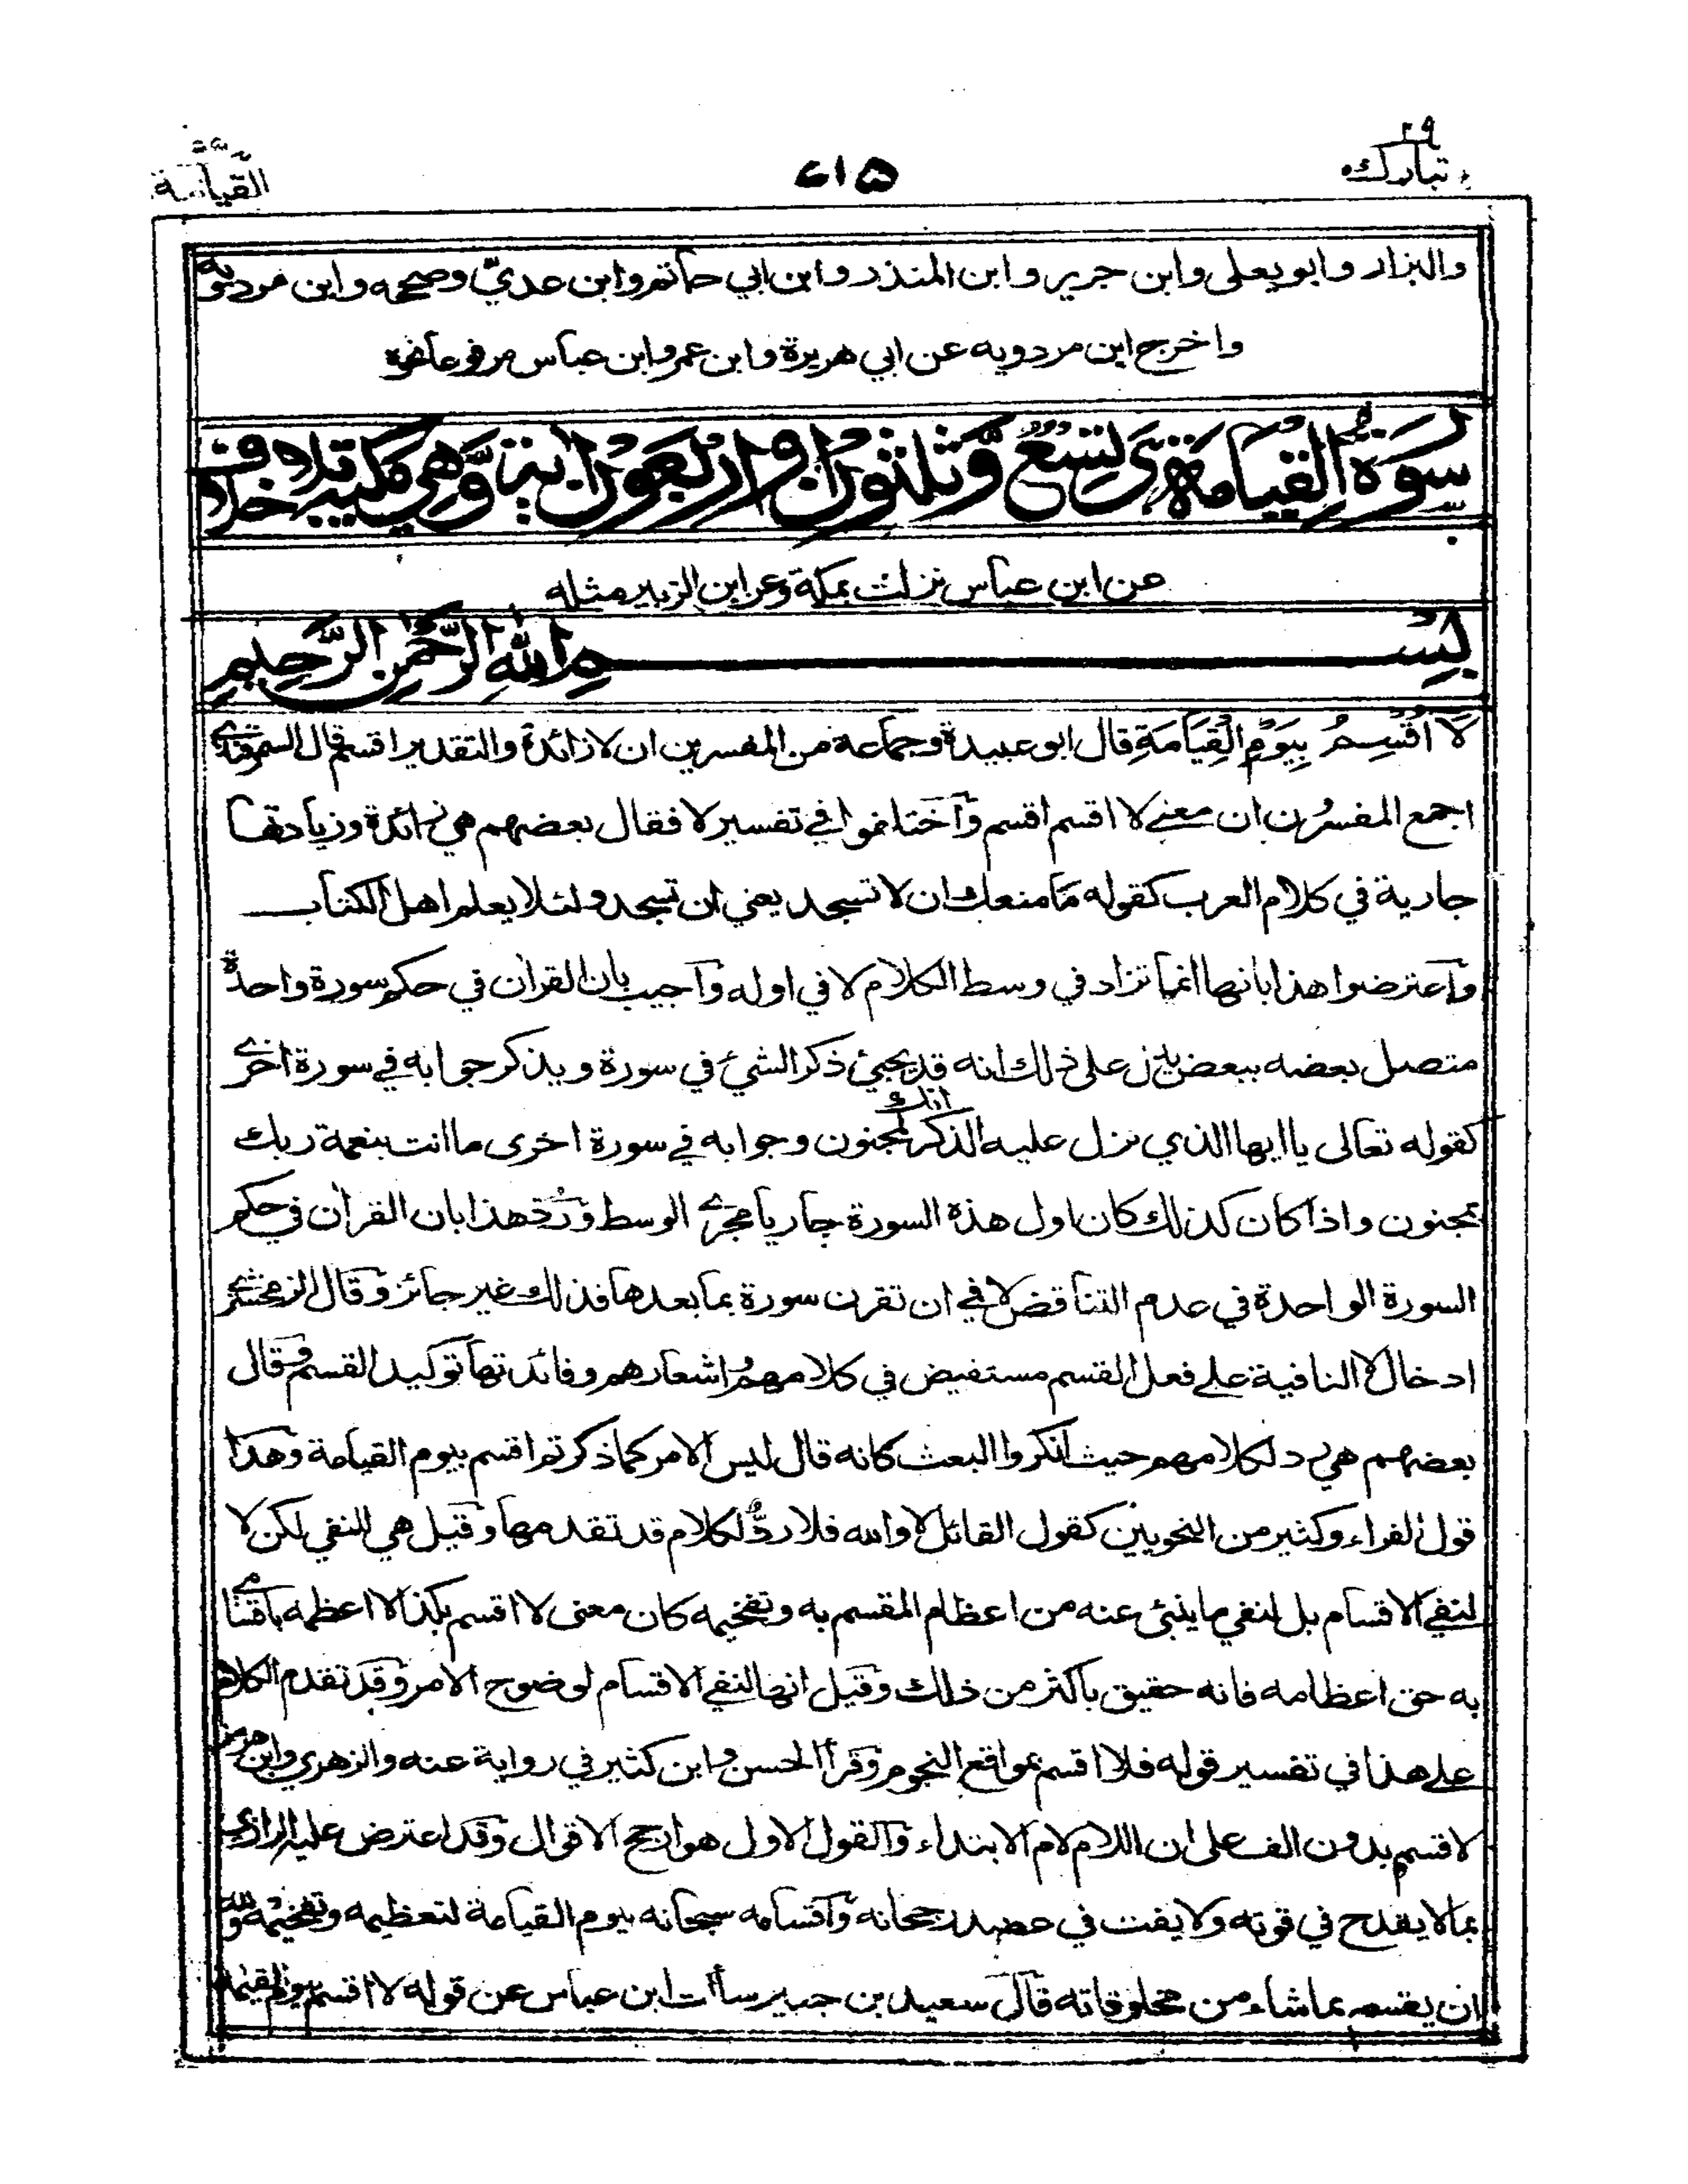 ٢٩
تبارك
٢١٥
القيامة
والبزار وابو يعلى وابن جرير وابن المنذر وابن ابي حاتم وابن عديّ وصححه وابن مردويه
واخرج ابن مردويه عن ابي هريرة وابن عمر وابن عباس مرفوعا نحوه
سورة القيامة هي تسع وثلثون او اربعون اية وهي مكية بلا خلاف
عن ابن عباس نزلت بمكة وعن ابن الزبير مثله
بسم الله الرحمن الرحيم
لَا اُقْسِمُ بِيَوْمِ الْقِيَامَةِ قال ابو عبيدة وجماعة من المفسرين ان لا زائدة والتقدير اقسم قال السمرقندي
اجمع المفسرون ان معنى لا اقسم اقسم واختلفوا في تفسير لا فقال بعضهم هي زائدة وزيادتها
جارية في كلام العرب كقوله ما منعك ان لا تسجد يعني ان تسجد ولئلا يعلم اهل الكتاب
واعترضوا هذا بانها انما تزاد في وسط الكلام لا في اوله واجيب بان القران في حكم سورة واحدة
متصل بعضه ببعض يدل على ذلك انه قد يجئ ذكر الشئ في سورة ويذكر جوابه في سورة اخرى
كقوله تعالى يا ايها الذي نزل عليه الذكر انك لمجنون وجوابه في سورة اخرى ما انت بنعمة ربك
بمجنون واذا كان كذلك كان اول هذه السورة جاريا مجرى الوسط ورد هذا بان القران في حكم
السورة الواحدة في عدم التناقض لا في ان تقرن سورة بما بعدها فذلك غير جائز وقال الزمخشري
ادخال لا النافية على فعل القسم مستفيض في كلامهم واشعارهم وفائدتها توكيد القسم وقال
بعضهم هي رد لكلامهم حيث انكروا البعث كانه قال ليس الامر كما ذكرتم اقسم بيوم القيامة وهذا
قول الفراء وكثير من النحويين كقول القائل لا والله فلا ردٌّ لكلام قد تقدمها وقيل هي للنفي لكن لا
لنفي الاقسام بل لنفي ما ينبئ عنه من اعظام المقسم به وتفخيمه كان معنى لا اقسم بكذا لا اعظمه باقسامي
به حق اعظامه فانه حقيق باكثر من ذلك وقيل انها لنفي الاقسام لوضوح الامر وقد تقدم الكلام
على هذا في تفسير قوله فلا اقسم بمواقع النجوم وقرأ الحسن وابن كثير في رواية عنه والزهري وابن هرمز
لاقسم بدون الف على ان اللام لام الابتداء والقول الاول هو ارجح الاقوال وقد اعترض عليه الرازي
بما لا يقدح في قوته ولا يفت في عضد رجحانه واقسامه سبحانه بيوم القيامة لتعظيمه وتفخيمه ولله
ان يقسم بما شاء من مخلوقاته قال سعيد بن جبير سألت ابن عباس عن قوله لا اقسم بيوم القيمة